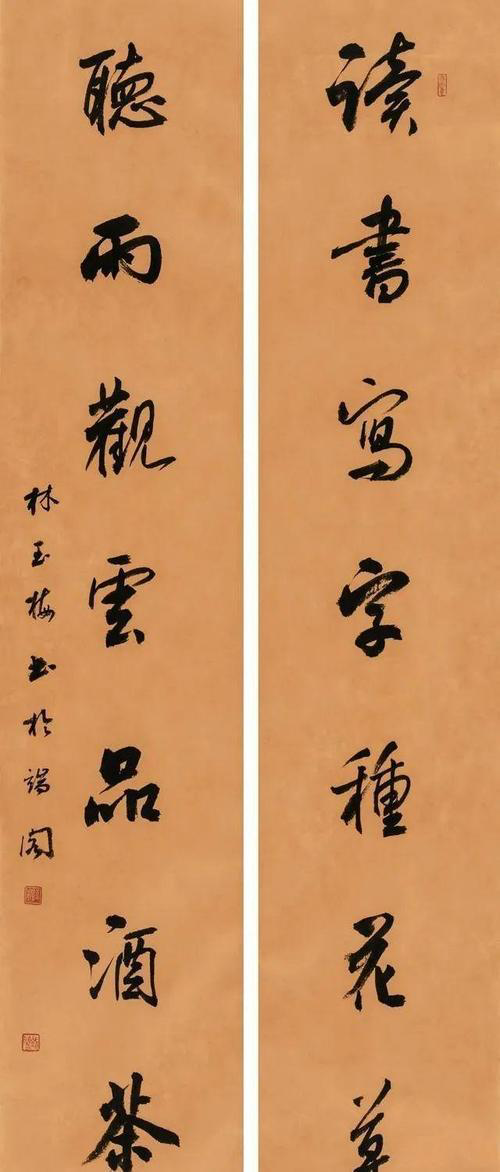 讀書寫字種花草
聽雨觀雲品酒茶
林玉梅书於端阁